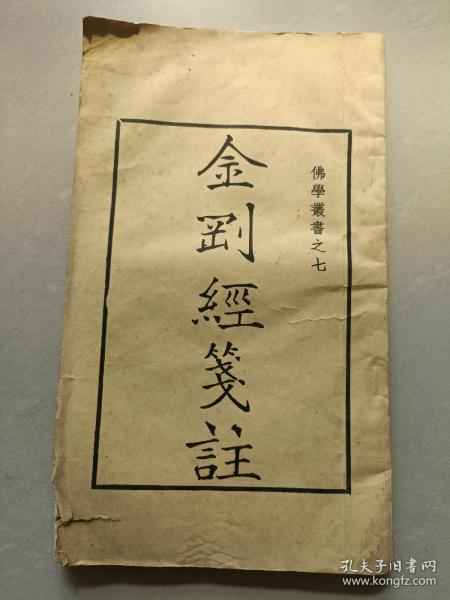 佛學叢書之七
金剛經箋註
孔夫子旧书网
www.kongfz.com